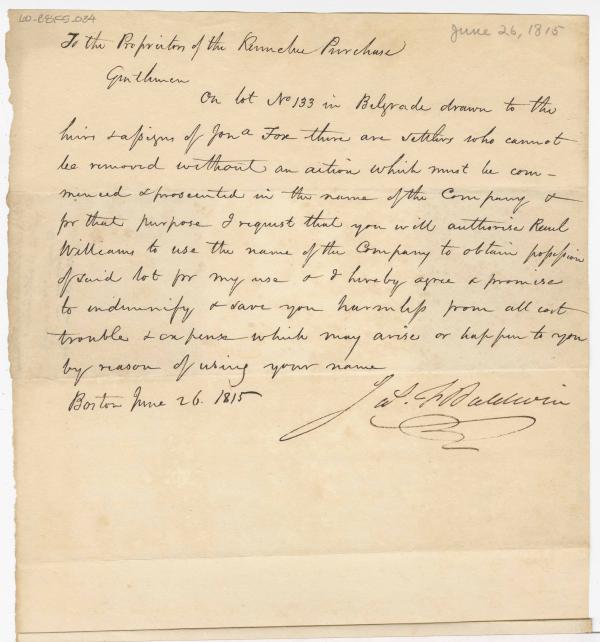 LO-BBFS-034
June 26, 1815
To the Proprietors of the Kennebec Purchase
Gentlemen
On lot No 133 in Belgrade drawn to the
heirs & assigns of Jona Fox there are settlers who cannot
be removed without an action which must be com-
menced & prosecuted in the name of the Company &
for that purpose I request that you will authorise Reuel
Williams to use the name of the Company to obtain possession
of said lot for my use & I hereby agree & promise
to indemnify & save you harmless from all cost
trouble & expense which may arise or happen to you
by reason of using your name
Boston June 26. 1815
Jas. F Baldwin